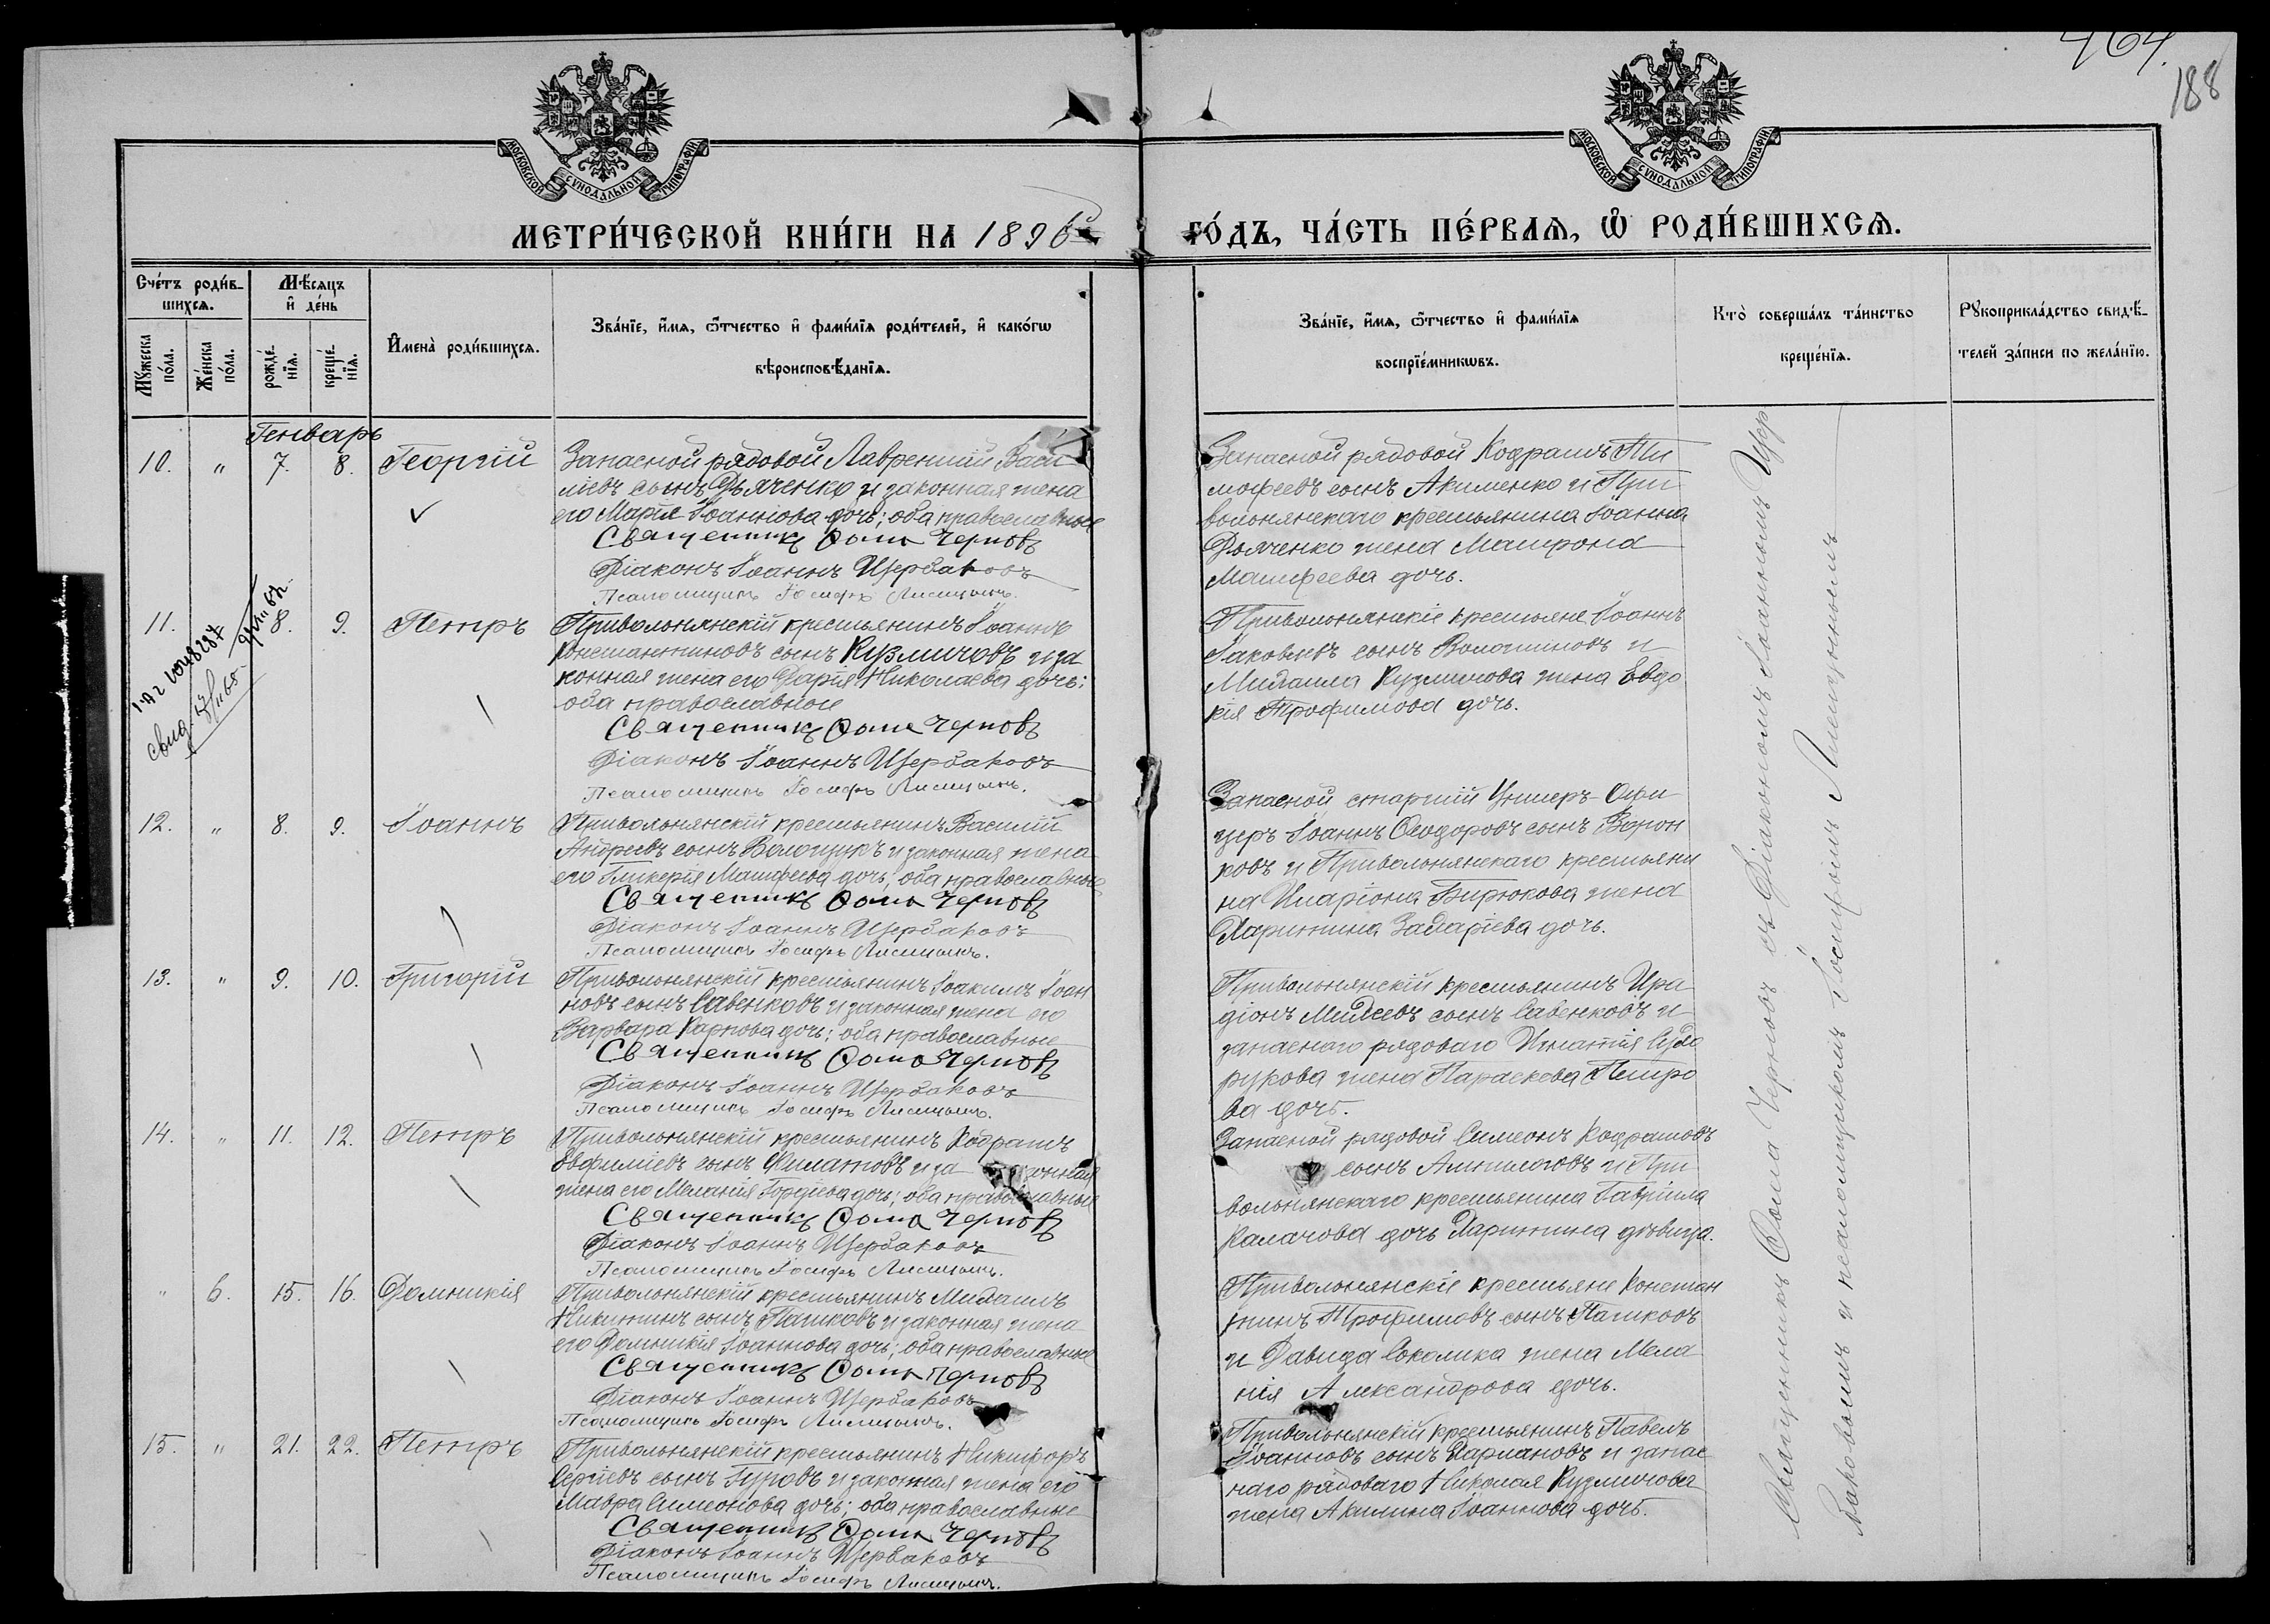 464.
188
МОСКОВСКОЙ СУНОДАЛЬНОЙ ТИПОГРАФІИ
МОСКОВСКОЙ СУНОДАЛЬНОЙ ТИПОГРАФІИ
МЕТРИ́ЧЕСКОЙ КНИ́ГИ НА 1896
ГО́ДЪ, ЧА́СТЬ ПЕ́РВАѦ, Ѽ РОДИ́ВШИХСѦ.
Сче́тъ роди́в-
шихсѧ.
Мѣ́сѧцъ
и҆ де́нь
Мꙋ́жеска по́ла.
Же́нска по́ла.
рожде́-
нїѧ.
креще́-
нїѧ.
И҆мена̀ роди́вшихсѧ.
Зва́нїе, и҆́мѧ, ѻ҆́тчество и҆ фами́лїѧ роди́телей, и҆ како́гѡ
вѣроисповѣ́данїѧ.
Зва́нїе, и҆́мѧ, ѻ҆́тчество и҆ фами́лїѧ
воспрїе́мникѡвъ.
Кто̀ соверша́лъ та́инство
креще́нїѧ.
Рꙋкоприкла́дство свидѣ́-
телей за́писи по жела́нїю.
Генварь
10. " 7. 8. Георгій
Запасной рядовой Лаврентій Васи
ліевъ сынъ Дьяченко и законная жена
его Марія Іоаннова дочь; оба православные
Священникъ Ѳома Черновъ
Діаконъ Іоаннъ Щербаковъ
Псаломщикъ Іосифъ Лисицынъ.
Запасной рядовой Кодратъ Ти
мофеевъ сынъ Акименко и При
вольнянскаго крестьянина Іоанна
Дьяченко жена Матрона
Матфеева дочь.
11. 8. 9. Петръ
Привольнянскій крестьянинъ Іоаннъ
Константиновъ сынъ Кузмичовъ и за
конная жена его Дарія Николаева дочь;
оба православные
Священникъ Ѳома Черновъ
Діаконъ Іоаннъ Щербаковъ
Псаломщикъ Іосифъ Лисицынъ.
Привольнянскіе крестьяне Іоаннъ
Іаковлевъ сынъ Волошиновъ и
Михаила Кузмичова жена Евдо
кія Трофимова дочь.
12. " 8. 9. Іоаннъ
Привольнянскій крестьянинъ Василій
Андреевъ сынъ Волощукъ и законная жена
его Гликерія Матфеева дочь; оба православные
Священникъ Ѳома Черновъ
Діаконъ Іоаннъ Щербаковъ
Псаломщикъ Іосифъ Лисицынъ.
Запасной старшій Унтеръ-Офи
церъ Іоаннъ Ѳеодоровъ сынъ Ворон
ковъ и Привольнянскаго крестьяни
на Иларіона Бирюкова жена
Харитина Захаріева дочь.
13. " 9. 10. Григорій
Привольнянскій крестьянинъ Іоакимъ Іоан
новъ сынъ Савенковъ и законная жена его
Варвара Карпова дочь; оба православные
Священникъ Ѳома Черновъ
Діаконъ Іоаннъ Щербаковъ
Псаломщикъ Іосифъ Лисицынъ.
Привольнянскій крестьянинъ Ира
діонъ сынъ Савенковъ и
запаснаго рядоваго Игнатія
жена Параскева Петро
ва дочь.
14. " 11. 12. Петръ
Привольнянскій крестьянинъ Кодратъ
Евфиміевъ сынъ Филатовъ и законная
жена его Меланія Гордіева дочь; оба православные
Священникъ Ѳома Черновъ
Діаконъ Іоаннъ Щербаковъ
Псаломщикъ Іосифъ Лисицынъ.
Запасной рядовой Симеонъ Кодратовъ
сынъ Ампилоговъ и При
вольнянскаго крестьянина Гавріила
Калачова дочь Харитина дѣвица.
" 6. 15. 16. Домникія
Привольнянскій крестьянинъ Михаилъ
Никитинъ сынъ Пашковъ и законная жена
его Домникія Іоаннова дочь; оба православные
Священникъ Ѳома Черновъ
Діаконъ Іоаннъ Щербаковъ
Псаломщикъ Іосифъ Лисицынъ.
Привольнянскіе крестьяне Констан
тинъ Трофимовъ сынъ Пашковъ
и Давида Соколика жена Мела
нія Александрова дочь.
15. " 21. 22. Петръ
Привольнянскій крестьянинъ Никифоръ
Сергіевъ сынъ Гуровъ и законная жена его
Мавра Симеонова дочь; оба православные
Священникъ Ѳома Черновъ
Діаконъ Іоаннъ Щербаковъ
Псаломщикъ Іосифъ Лисицынъ.
Привольнянскій крестьянинъ Павелъ
Іоанновъ сынъ Харлановъ и запас
наго рядоваго Николая Кузмичова
жена Акилина Іоаннова дочь.
Священникъ Ѳома Черновъ съ Діакономъ Іоанномъ Щер
баковымъ и псаломщикомъ Іосифомъ Лисицынымъ